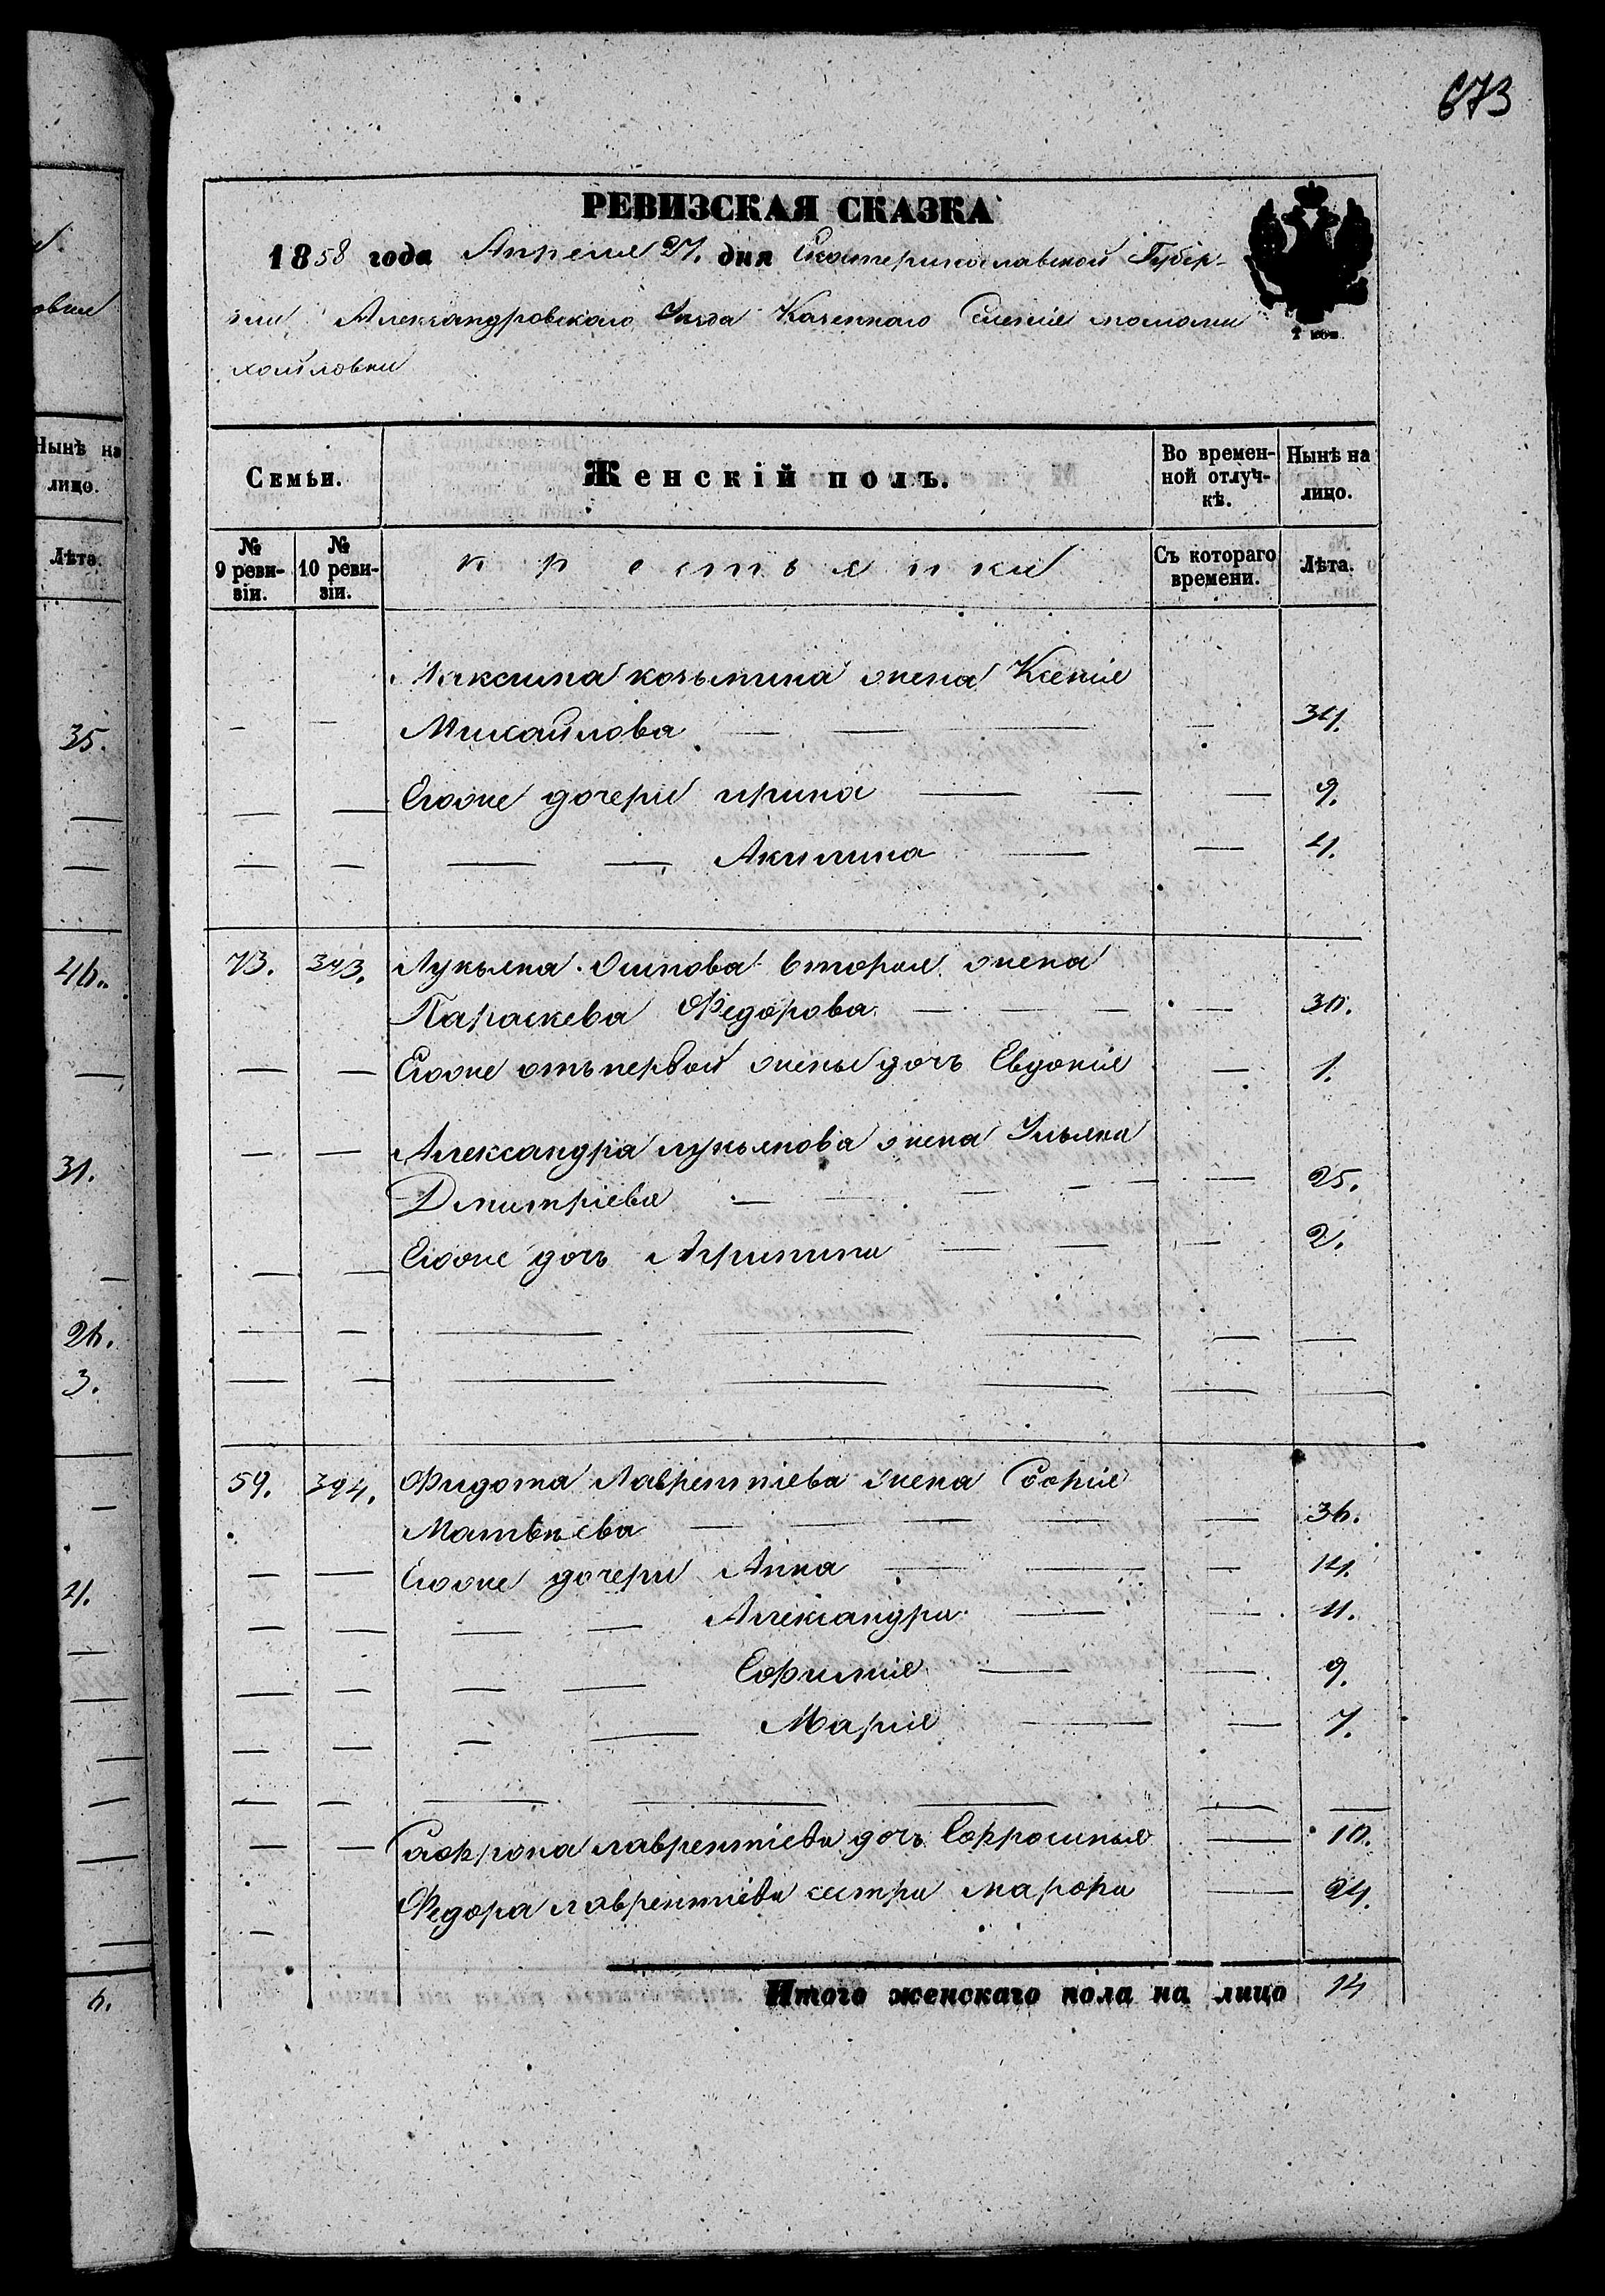 673
РЕВИЗСКАЯ СКАЗКА
1858 года Апреля 27. дня Екатеринославской Губер-
нии Александровскаго Уезда Казеннаго Селенія маломи
хайловки
2 коп.
Семьи.
Женскій полъ.
Во времен-
ной отлуч-
кѣ.
Нынѣ на
лицо.
№
9 реви-
зіи.
№
10 реви-
зіи.
крестьянки
Съ котораго
времени.
Лѣта.
Максима козьмина жена Ксенія
Михайлова 34.
Егоже дочери ирина 9.
Акилина 4.
73. 393. Лукьяна Осипова вторая жена
Параскева Федорова 30.
Егоже отъ первой жены дочь Евдокія 1.
Александра лукьянова жена Ульяна
Дмитріева 25.
Егоже дочь Агрипина 2.
59. 394. Федота Лаврентіева жена Софія
Матвѣева 36.
Егоже дочери Анна 14.
Александра 11.
Ефимія 9.
Марія 7.
Сафрона лаврентіева дочь Ефросинья 10.
Федора лаврентіева сестра марфа 24.
Итого женскаго пола на лицо 14
Нынѣ на
лицо.
Лѣта.
35.
46.
31.
26.
3.
4.
6.